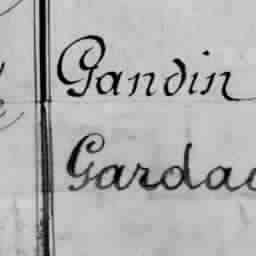 Gandin
Gardac